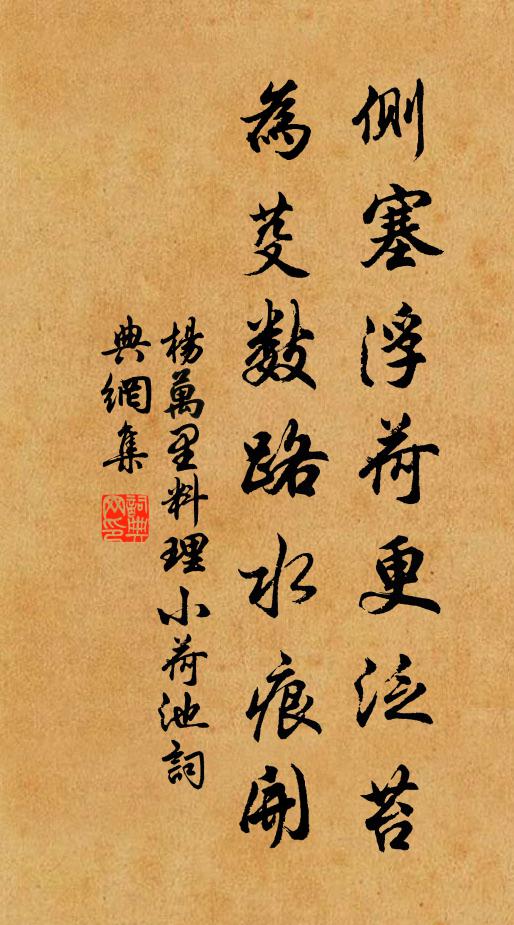 側塞浮荷更泛苔
為芟數路水痕開
楊萬里料理小荷池詞
典網集
詞典
网印